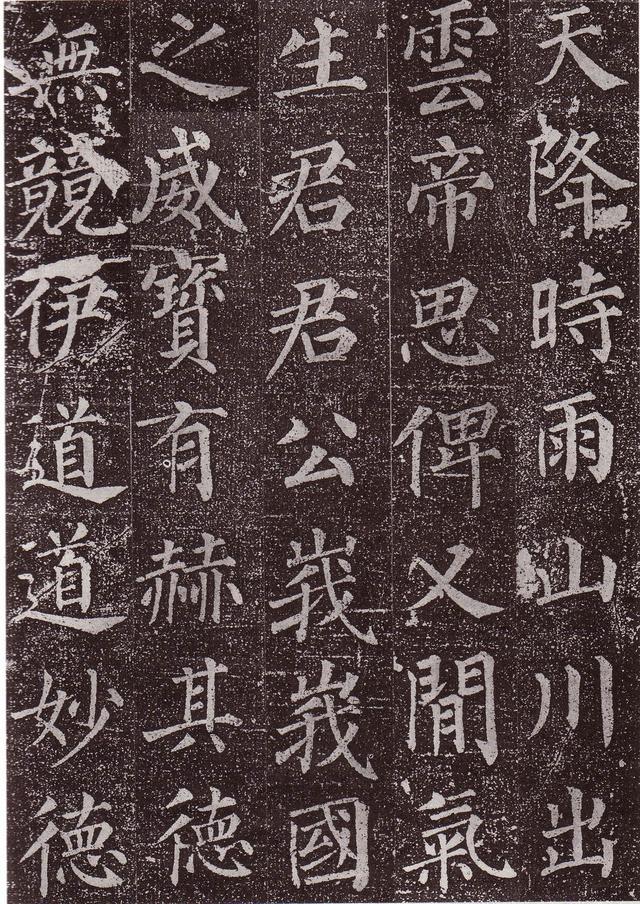 天降時雨山川出
雲帝思俾乂間氣
生君君公峩峩國
之威寶有赫其德
無競伊道道妙德